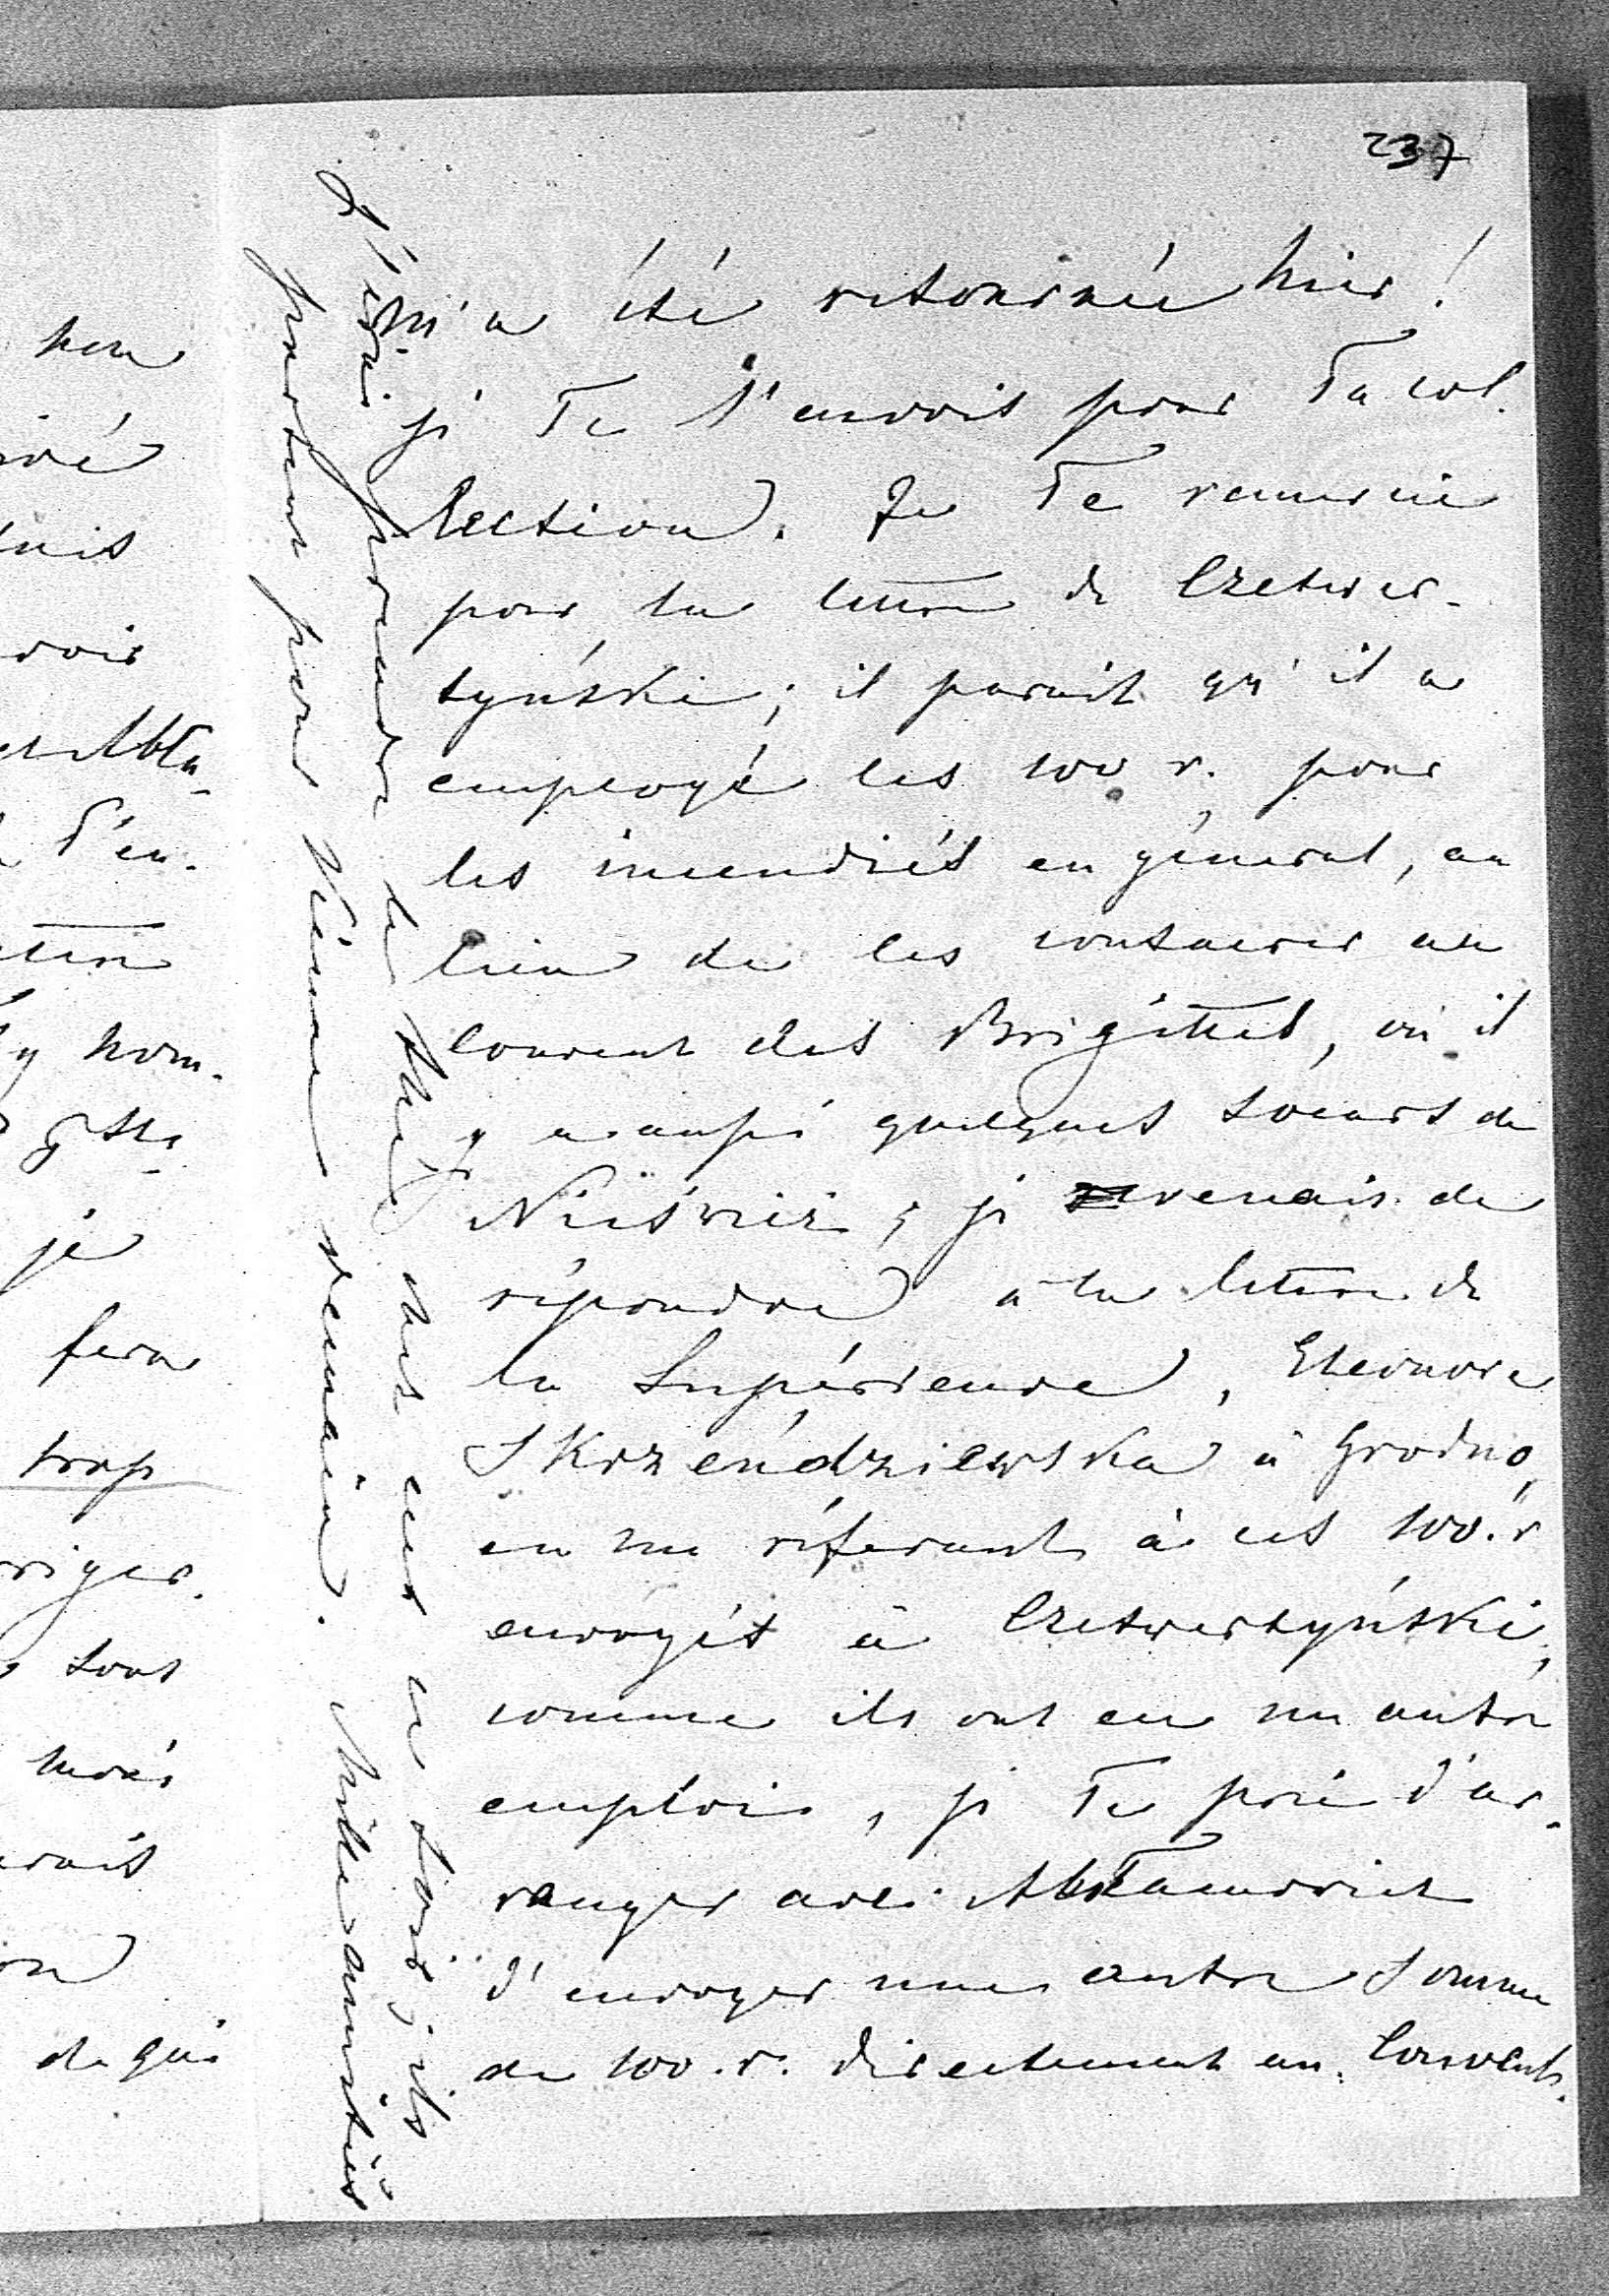 237
m'a été retournée hier!
je Te l'envois pour Ta col.
lection. Je Te remercie
pour la lettre de Czetwer-
tyński; il parait qu'il a
employé les 100 r. pour
les incendiés en général, au
lieu de les consacrer au
couvent des Brigittes, où il
y a aussi quelques soeurs de
Nieśwież; je venais de
répondre à la lettre de
la Supérieure, Eleonore
Skrzéndziewska à Grodno,
en me référant à ces 100.r
envoyés à Czetwertyński,
comme ils ont eu un autre
emploi, je Te prie d'ar-
ranger avec Abłamowicz
d'envoyer une autre somme
de 100.r. directement au Couvent.
J'irai prendre la
et ces; ils
partent pour Vienne demain. Mille amitiés
hem
ivé
nis
voir
Abła-
T'en-
ettre
y nom-
je
fera
trop
riger.
sous
moi
rais
on
de qui